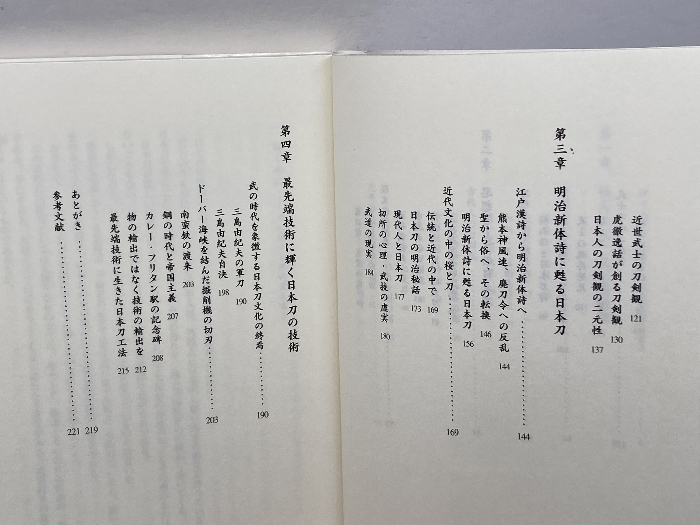 近世武士の刀剣観 121
虎徹逸話が創る刀剣観 130
日本人の刀剣観の二元性 137
第三章 明治新体詩に甦る日本刀
江戸漢詩から明治新体詩へ………… 144
熊本神風連、廃刀令への反乱 144
聖から俗へ その転換 146
明治新体詩に甦る日本刀 156
近代文化の中の桜と刀………… 169
伝統と近代の中で 169
日本刀の明治秘話 173
現代人と日本刀 177
切所の心理・武技の虚実 180
武道の現実 184
第四章 最先端技術に輝く日本刀の技術
武の時代を象徴する日本刀文化の終焉………… 190
三島由紀夫の軍刀 190
三島由紀夫自決 198
ドーバー海峡を結んだ掘削機の切刃………… 203
南蛮鉄の渡来 203
鋼の時代と帝国主義 207
カレー・フリタン駅の記念碑 208
物の輸出ではなく技術の輸出を 212
最先端技術に生きた日本刀工法 215
あとがき………… 219
参考文献………… 221